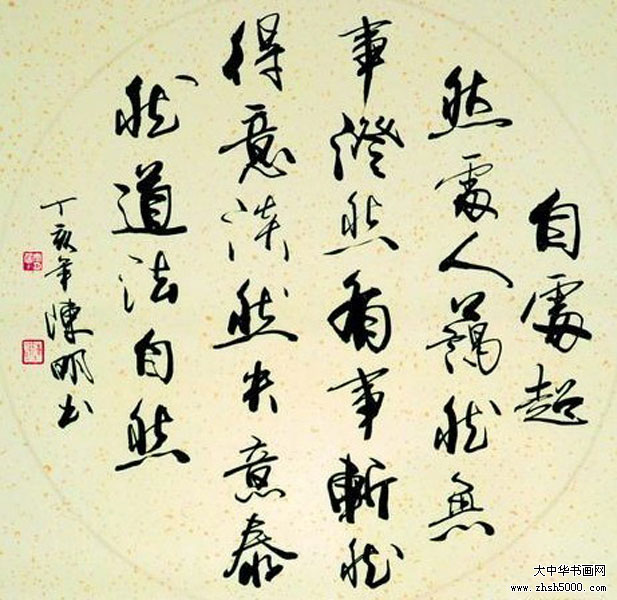 自處超
然處人藹然無
事澄然有事斬然
得意淡然失意泰
然道法自然
丁亥年陳明书
大中华书画网
www.zhsh5000.com